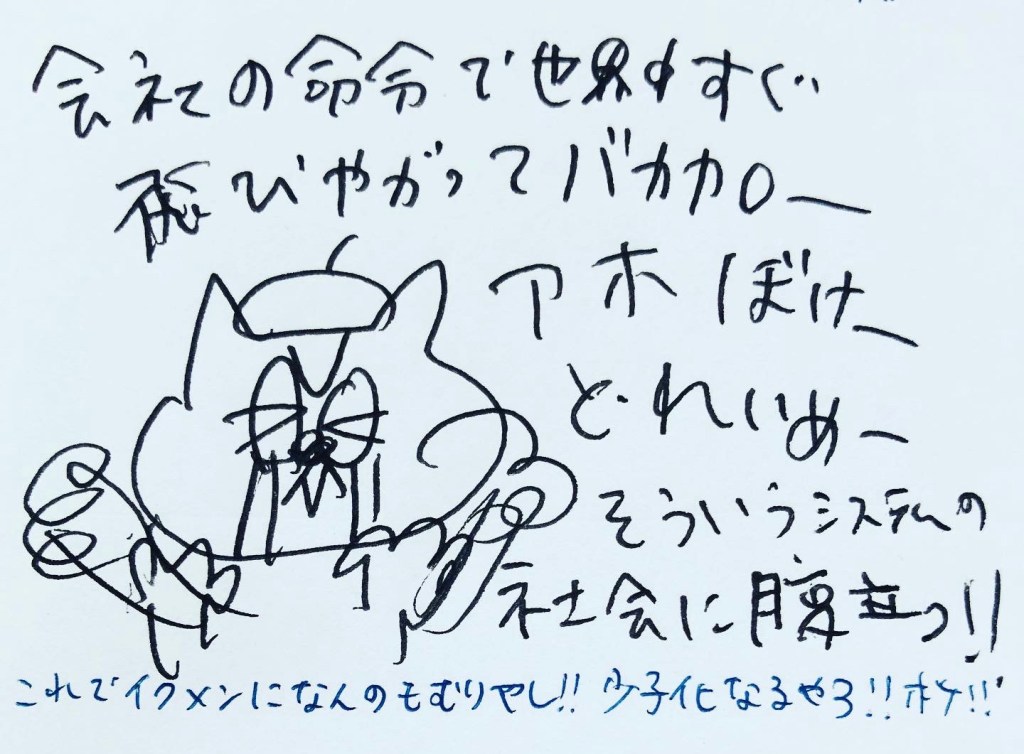 会社の命令で世界中すぐ
飛びやがってバカカロー
アホぼけー
どれいめー
そういうシステムの
社会に腹立つ!!
これでイクメンになんのもむりやし!! 少子化なるやろ!!ボケ!!